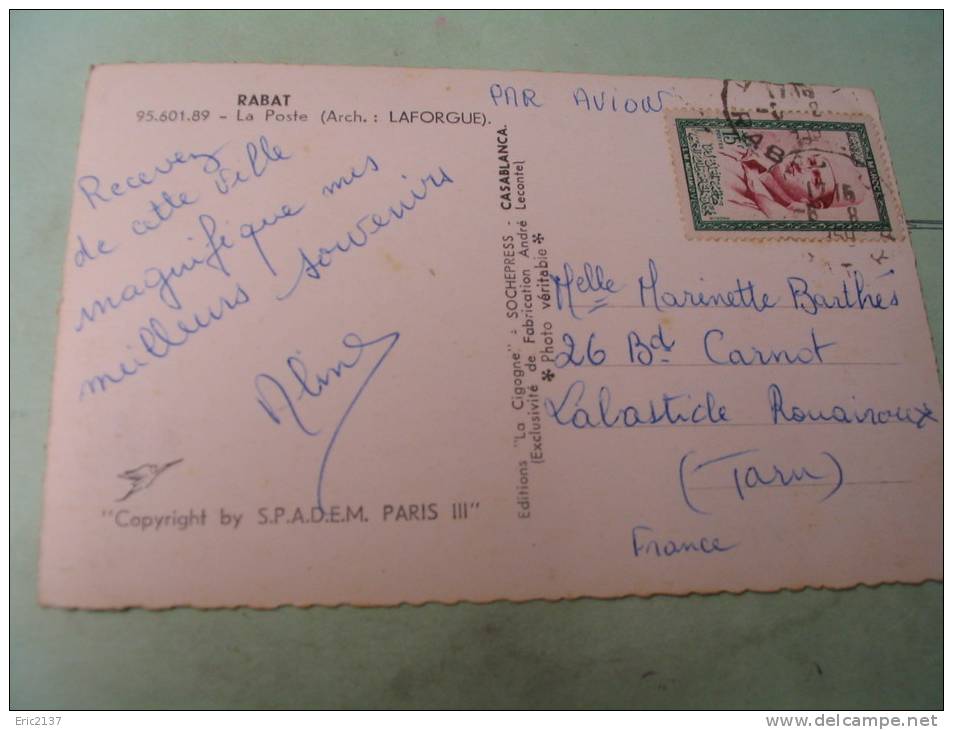 RABAT
95.601.89 - La Poste (Arch. : LAFORGUE).
PAR AVION
Recevez
de cette ville
magnifique mes
meilleurs souvenirs
Aline
"Copyright by S.P.A.D.E.M. PARIS III"
Editions "La Cigogne" - SOCHEPRESS - CASABLANCA.
(Exclusivité de Fabrication André Leconte)
* Photo véritable *
15
RABAT
Melle Marinette Barthés
26 Bd Carnot
Labastide Rouairoux
(Tarn)
France
Eric2137
www.delcampe.net